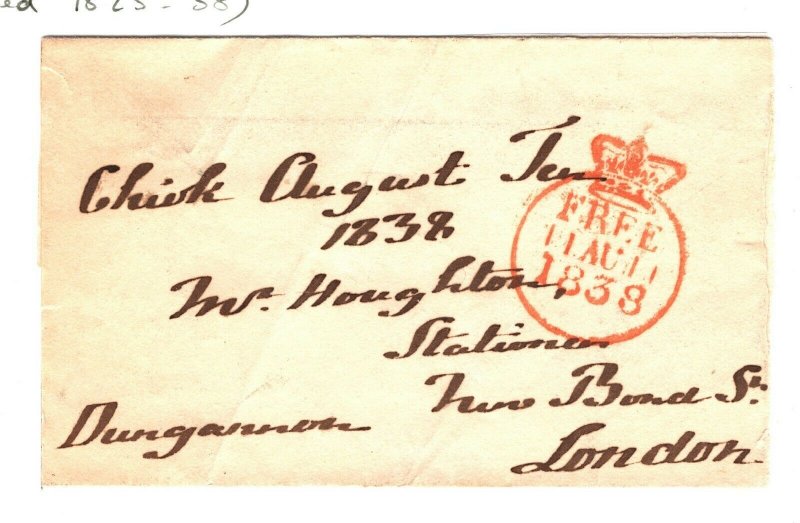 ed 1825-38)
Chirk August Ten
1838
Mr. Houghton,
Stationer
New Bond St.
Dungannon
London
FREE
11 AU 11
1838